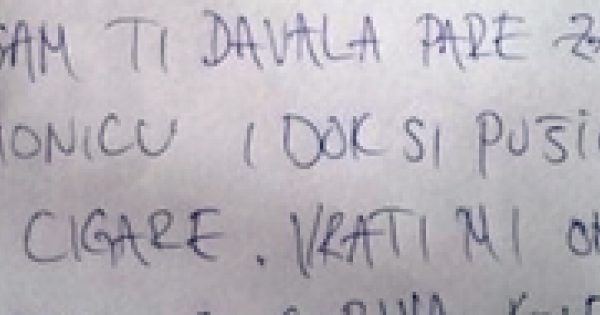 SAM TI DAVALA PARE
ONICU I DOK SI PUŠI
CIGARE. VRATI MI